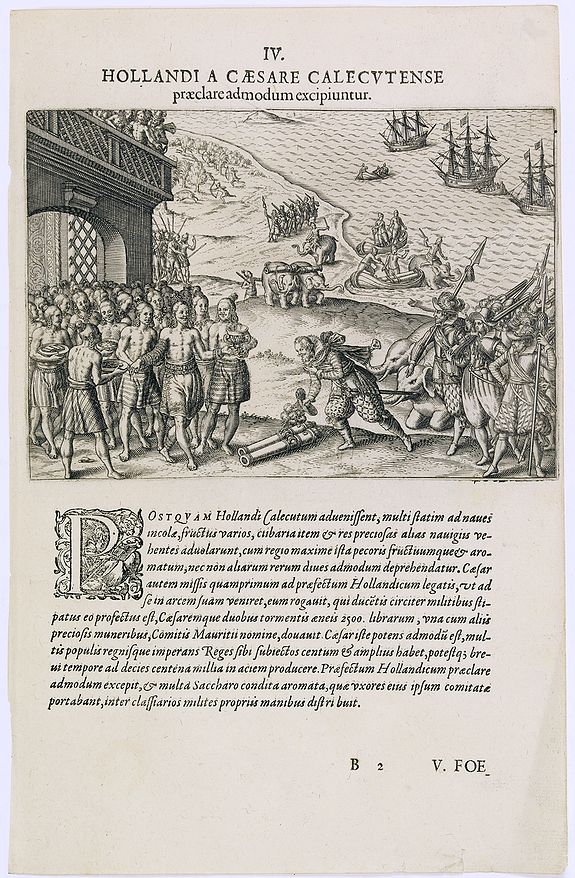 IV.
HOLLANDI A CÆSARE CALECVTENSE
præclare admodum excipiuntur.
POSTQVAM Hollandi Calecutum aduenissent, multi statim ad naues
incolæ, fructus varios, cibaria item & res preciosas alias nauigiis ve-
hentes aduolarunt, cum regio maxime ista pecoris fructiumque & aro-
matum, nec non aliarum rerum diues admodum deprehendatur. Cæsar
autem missis quamprimum ad præfectum Hollandicum legatis, vt ad
se in arcem suam veniret, eum rogauit, qui ducētis circiter militibus sti-
patus eo profectus est, Cæsaremque duobus tormentis æneis 2500. librarum, vna cum aliis
preciosis muneribus, Comitis Mauritii nomine, donauit. Cæsar iste potens admodū est, mul-
tis populis regnisque imperans Reges sibi subiectos centum & amplius habet, potestq; bre-
ui tempore ad decies centena millia in aciem producere. Præfectum Hollandicum præclare
admodum excepit, & multa Saccharo condita aromata, quæ vxores eius ipsum comitatæ
portabant, inter classiarios milites propriis manibus distribuit.
B 2 V. FOE